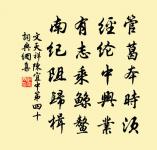 管葛本時須
經綸中興業
有志乘鯨鰲
南紀阻歸楫
文天祥陳宜中第四十
詞典網集